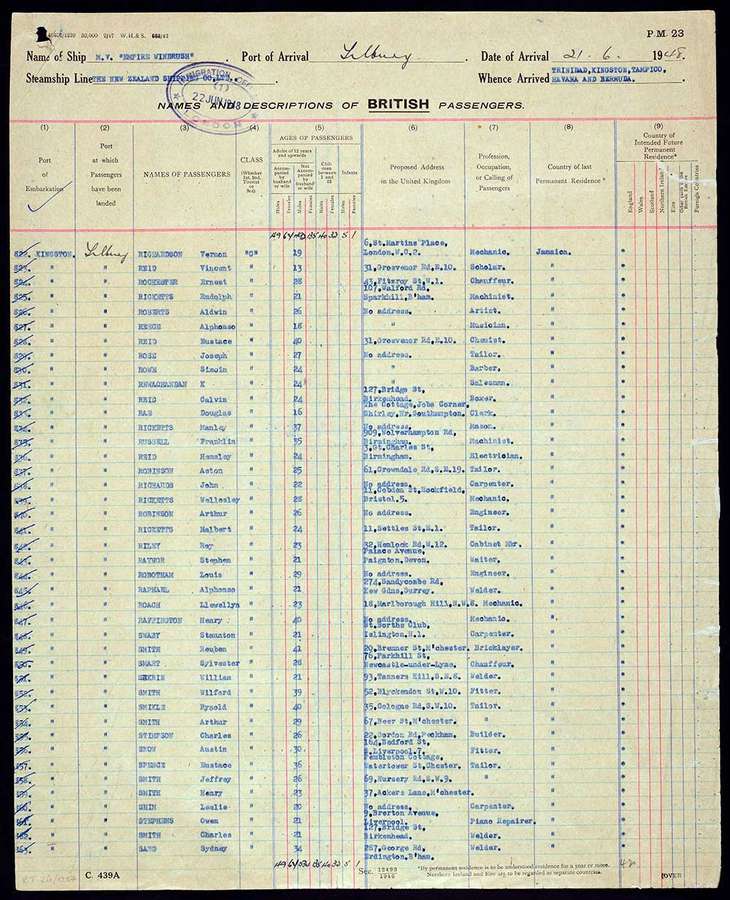 P.M. 23
Name of Ship M.V. "EMPIRE WINDRUSH" Port of Arrival Tilbury Date of Arrival 21. 6. 1948.
Steamship Line THE NEW ZEALAND SHIPPING CO., LTD. Whence Arrived TRINIDAD, KINGSTON, TAMPICO, HAVANA AND BERMUDA.
IMMIGRATION OFFICER
(1)
22 JUN 1948
LONDON
NAMES AND DESCRIPTIONS OF BRITISH PASSENGERS.
(1) (2) (3) (4) (5) (6) (7) (8) (9)
Port of Embarkation
Port at which Passengers have been landed
NAMES OF PASSENGERS
CLASS (Whether 1st, 2nd, Tourist or 3rd)
AGES OF PASSENGERS
Adults of 12 years and upwards
Accompanied by husband or wife
Not Accompanied by husband or wife
Children between 1 and 12
Infants
Males Females Males Females Males Females Males Females
Proposed Address in the United Kingdom
Profession, Occupation, or Calling of Passengers
Country of last Permanent Residence*
Country of Intended Future Permanent Residence*
England Wales Scotland Northern Ireland* Eire* Foreign Countries
822. KINGSTON. Tilbury RICHARDSON Vernon "C" 19 6, St.Martins Place, London, W.C.2. Mechanic. Jamaica. "
823. " " REID Vincent " 13 31, Grosvenor Rd, E.10. Scholar. " "
824. " " ROCHESTER Ernest " 28 43, Fitzroy St, W.1. Chauffeur. " "
825. " " RICKETTS Rudolph " 21 107, Walford Rd, Sparkhill, B'ham. Machinist. " "
826. " " ROBERTS Aldwin " 26 No address. Artist. " "
827. " " Alphonso " 18 " Musician. " "
828. " " REID Eustace " 40 31, Grosvenor Rd, E.10. Chemist. " "
829. " " ROSE Joseph " 27 No address. Tailor. " "
830. " " ROWE " 24 " Barber. " "
831. " " K " 24 " Salesman. " "
832. " " REID Calvin " 24 127, Bridge St, Birkenhead. Boxer. " "
833. " " RAE Douglas " 16 The Cottage, Jobs Corner, Shirley, Nr, Southampton. Clerk. " "
834. " " RICKETTS Manley " 37 No address. Mason. " "
835. " " RUSSELL Franklin " 35 909, Wolverhampton Rd, Birmingham. Machinist. " "
836. " " REID Hensley " 24 3, Gt, Charles St, Birmingham. Electrician. " "
837. " " ROBINSON Aston " 25 61, Crowndale Rd, S.E.19. Tailor. " "
838. " " RICHARDS John " 22 No address. Carpenter. " "
839. " " RICKETTS Wellesley " 28 11, Cobden St, Rockfield, Bristol, 5. Mechanic. " "
840. " " ROBINSON Arthur " 26 No address. Engineer. " "
841. " " RICKETTS Halbert " 24 11, Settles St, E.1. Tailor. " "
842. " " RILEY Roy " 23 32, Hemlock Rd, W.12. Cabinet Mkr. " "
843. " " RAYNOR Stephen " 21 Palace Avenue, Paignton, Devon. Waiter. " "
844. " " ROBOTHAM Louis " 29 No address. Engineer. " "
845. " " RAPHAEL Alphonso " 21 274, Sandycombe Rd, Kew Gdns, Surrey. Welder. " "
846. " " ROACH Llewellyn " 23 18, Marlborough Hill, N.W.8. Mechanic. " "
847. " " RAFFINGTON Henry " 40 No address. Mechanic. " "
848. " " SWABY Staunton " 21 Club, Islington, N.1. Carpenter. " "
849. " " SMITH Reuben " 41 20, St, M'chester. Bricklayer. " "
850. " " SMART Sylvester " 28 76, Parkhill St, Newcastle-under-Lyme. Chauffeur. " "
851. " " William " 21 93, Tanners Hill, S.E.8. Welder. " "
852. " " SMITH Wilford " 39 52, Blyckendon St, W.10. Fitter. " "
853. " " SMIKLE " 40 35, Cologne Rd, S.W.10. Tailor. " "
854. " " SMITH Arthur " 29 67, Beer St, M'chester. " " "
855. " " STIMPSON Charles " 26 22, Gordon Rd, Peckham. Builder. " "
856. " " SNOW Austin " 30 164, Bedford St, S. Liverpool, 7. Fitter. " "
857. " " SPENCE Eustace " 36 Pembleton Cottage, Watertower St, Chester. Tailor. " "
858. " " SMITH Jeffrey " 26 69, Nursery Rd, S.W.9. " " "
859. " " SMITH Henry " 23 37, Ackers Lane, M'chester. " "
860. " " SHIM Leslie " 20 No address. Carpenter. " "
861. " " STEPHENS Owen " 21 9, Brerton Avenue, Liverpool. Piano Repairer. " "
862. " " SMITH Charles " 21 127, Bridge St, Birkenhead. Welder. " "
863. " " Sydney " 34 287, George Rd, Erdington, B'ham. Welder. " "
C. 439A
Sec.
*By permanent residence is to be understood residence for a year or more. Northern Ireland and Eire are to be regarded as separate countries.
[OVER